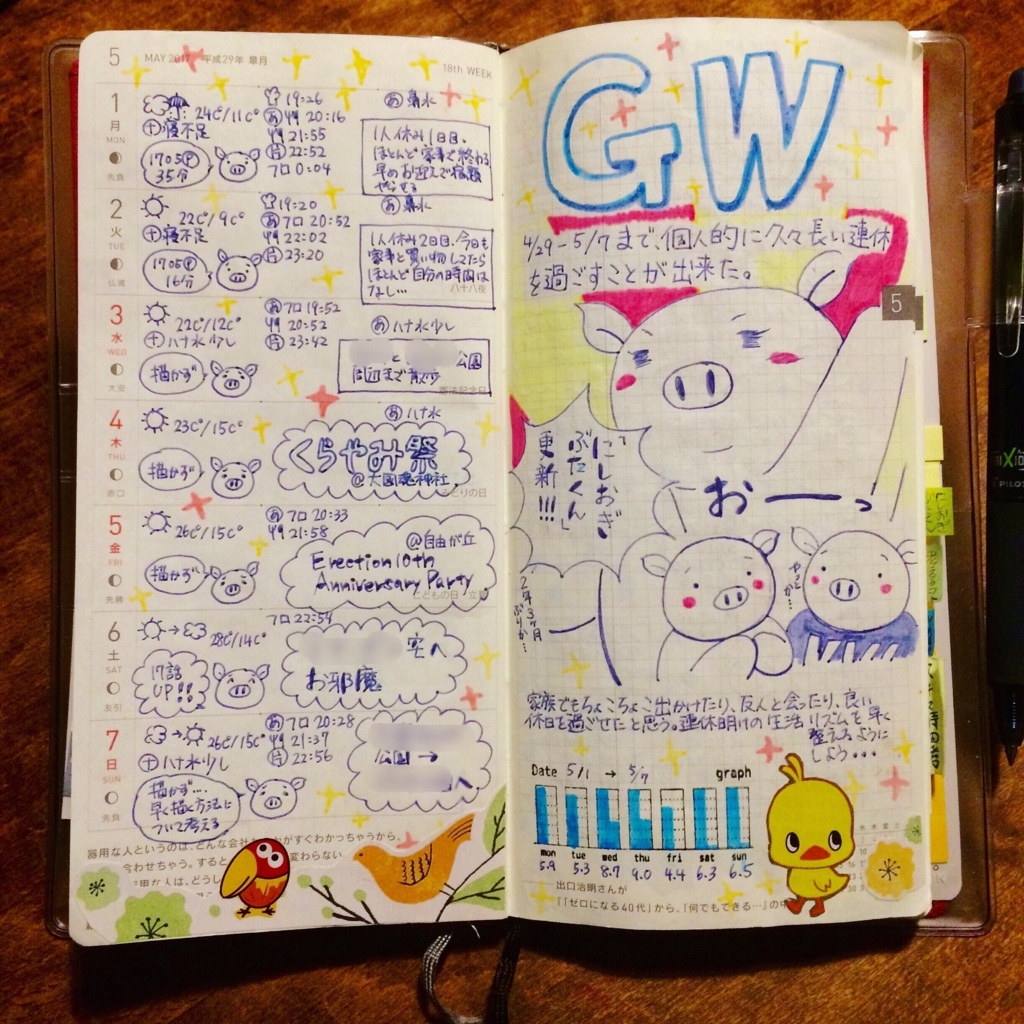 5 MAY 2017 平成29年 皐月
18th WEEK
1
月
MON
先負
24℃/11℃
寝不足
1705 P
35分
19:26
あ 20:16
21:55
22:52
フロ 0:04
あ 鼻水
1人休み1日目、
ほとんど家事で終わる
早めお迎えで宿題
やらせる
2
火
TUE
仏滅
22℃/9℃
寝不足
1705 P
16分
19:20
あ フロ 20:52
22:02
23:20
あ 鼻水
1人休み2日目、今日も
家事と買い物してたら
ほとんど自分の時間は
なし…
八十八夜
3
水
WED
大安
22℃/12℃
ハナ水少し
描かず
あ フロ 19:52
20:52
23:42
あ ハナ水少し
と 公園
周辺まで散歩
憲法記念日
4
木
THU
赤口
23℃/15℃
描かず
あ ハナ水
くらやみ祭
@大國魂神社
みどりの日
5
金
FRI
先勝
26℃/15℃
描かず
あ フロ 20:33
21:58
@自由が丘
Erection 10th
Anniversary Party
こどもの日 立夏
6
土
SAT
友引
28℃/14℃
17話
UP!!
フロ 22:54
宅へ
お邪魔
7
日
SUN
先負
26℃/15℃
ハナ水少し
描かず…
早く描く方法に
ついて考える
あ フロ 20:28
21:37
22:56
公園 →
へ
器用な人というのは、どんな会社
がすぐわかっちゃうから、
今わせちゃう。すると
変わらない
GW
4/29-5/7まで、個人的に久々長い連休
を過ごすことが出来た。
5
「にしおぎ
ぶたくん」
更新!!!
おーっ
やっとか…
2年3ヶ月
ぶりか…
家族でもちょこちょこ出かけたり、友人と会ったり、良い
休日を過ごせたと思う。連休明けの生活リズムを早く
整えるように
しよう…
Date 5/1 → 5/7 graph
mon tue wed thu fri sat sun
5.9 5.3 8.7 9.0 4.4 6.3 6.5
出口治明さんが
『「ゼロになる40代」から、「何でもできる…』の中
PILOT